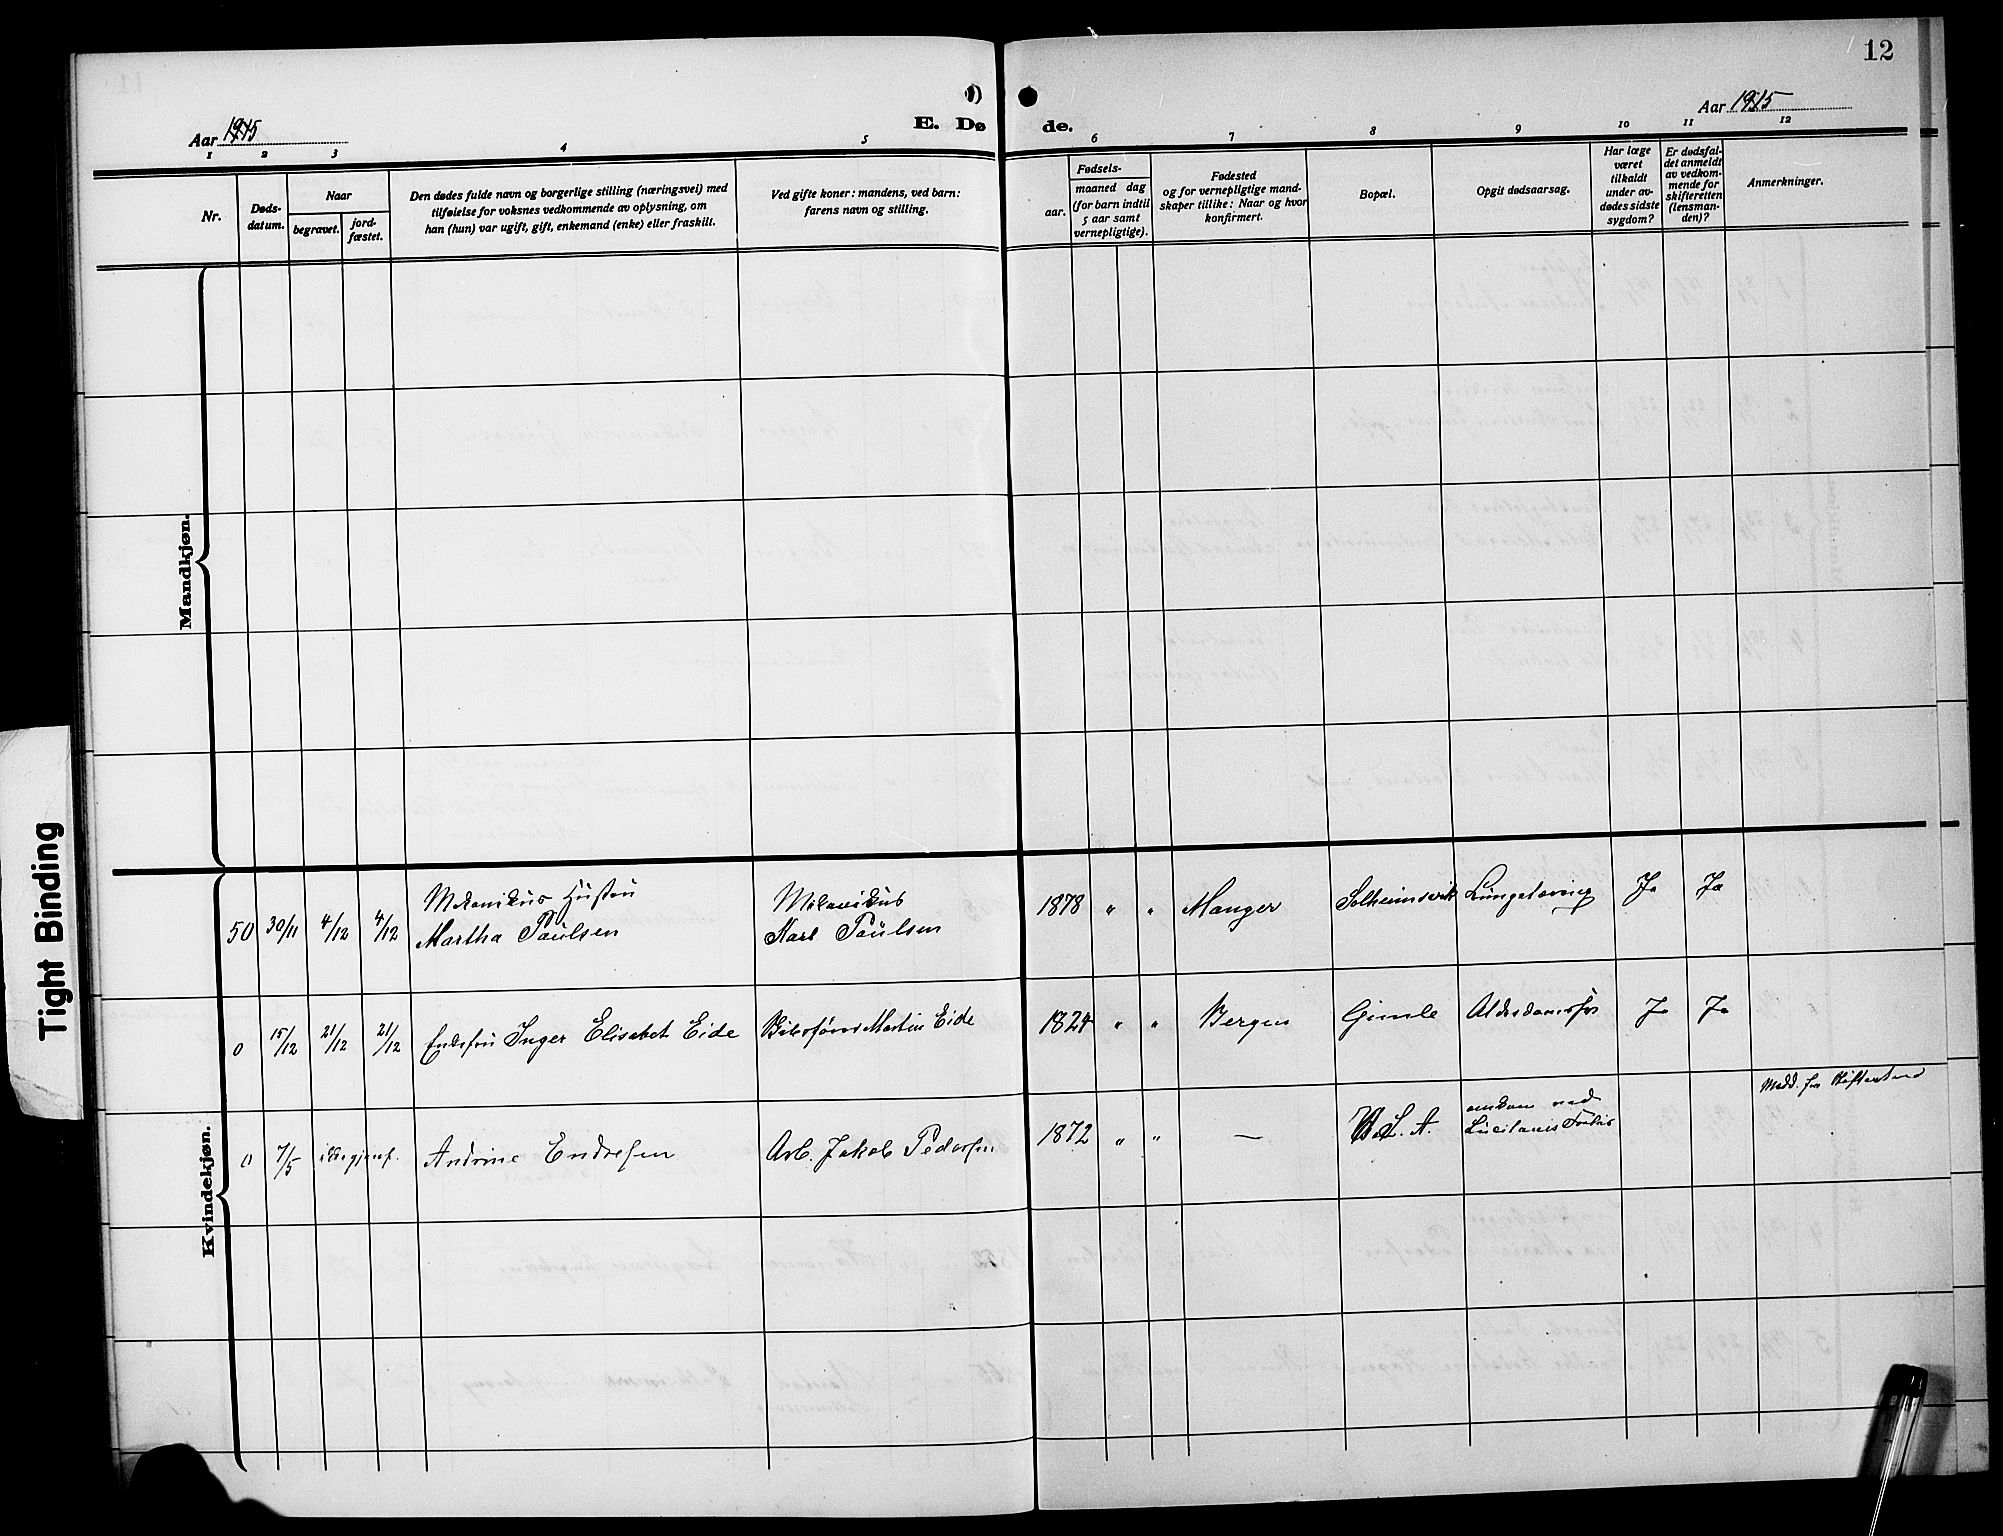 12
Aar 1915
E. Dø
de.
Aar 1915
1 2 3 4 5
6 7 8 9 10 11 12
Nr.
Døds-
datum.
Naar
begravet.
jord-
fæstet.
Den dødes fulde navn og borgerlige stilling (næringsvei) med
tilføielse for voksnes vedkommende av oplysning, om
han (hun) var ugift, gift, enkemand (enke) eller fraskilt.
Ved gifte koner: mandens, ved barn:
farens navn og stilling.
Fødsels-
aar.
maaned dag
(for barn indtil
5 aar samt
vernepligtige).
Fødested
og for vernepligtige mand-
skaper tillike: Naar og hvor
konfirmert.
Bopæl.
Opgit dødsaarsag.
Har læge
været
tilkaldt
under av-
dødes sidste
sygdom?
Er dødsfal-
det anmeldt
av vedkom-
mende for
skifteretten
(lensman-
den)?
Anmerkninger.
Mandkjøn.
Kvindekjøn.
Mekanikus Hustru
Mekanikus
50 30/11 4/12 4/12 Martha Paulsen Karl Paulsen 1878 " " Manger Solheimsvik Ja Ja
0 15/12 21/12 21/12 Inger Elisabet Eide Martin Eide 1824 " " Bergen Gimle Ja Ja
omkom ved
0 7/5 Andrine Endresen Arb. Jakob Pedersen 1872 " " — U.S.A. Lusitanis Forlis
Medd. fra Skifteretten
Tight Binding